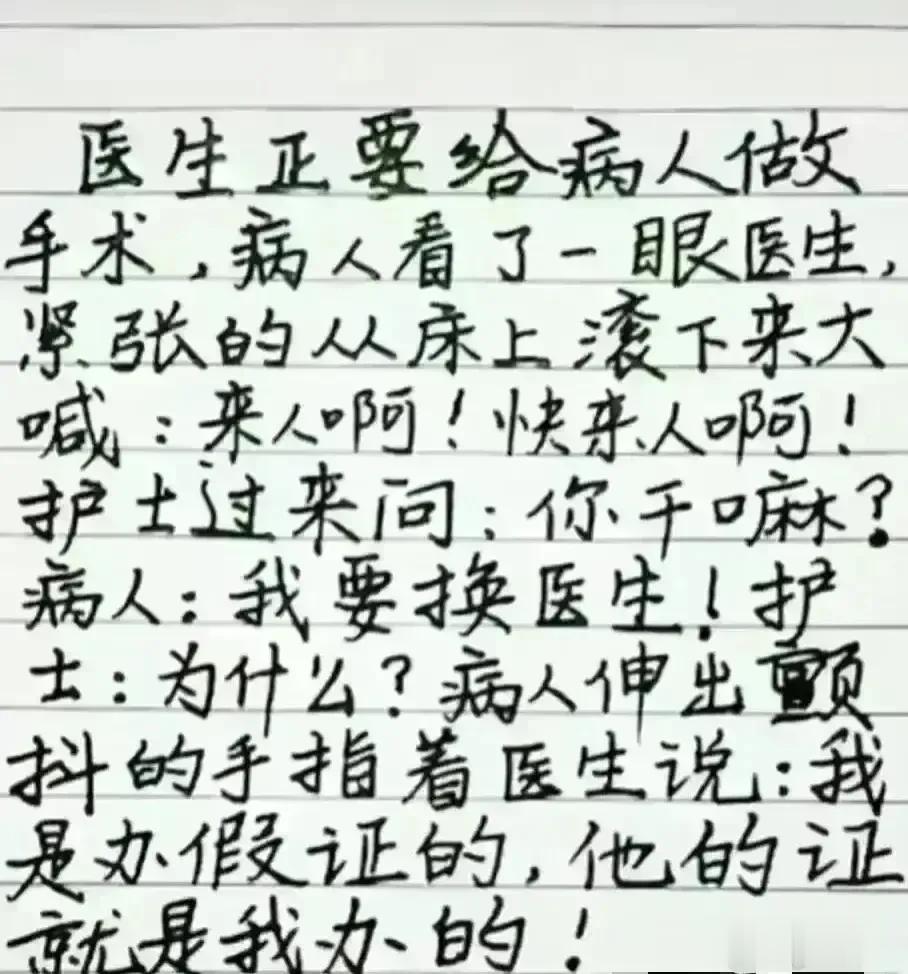 医生正要给病人做
手术,病人看了一眼医生,
紧张的从床上滚下来大
喊:来人啊!快来人啊!
护士过来问:你干嘛?
病人:我要换医生!护
士:为什么?病人伸出颤
抖的手指着医生说:我
是办假证的,他的证
就是我办的!